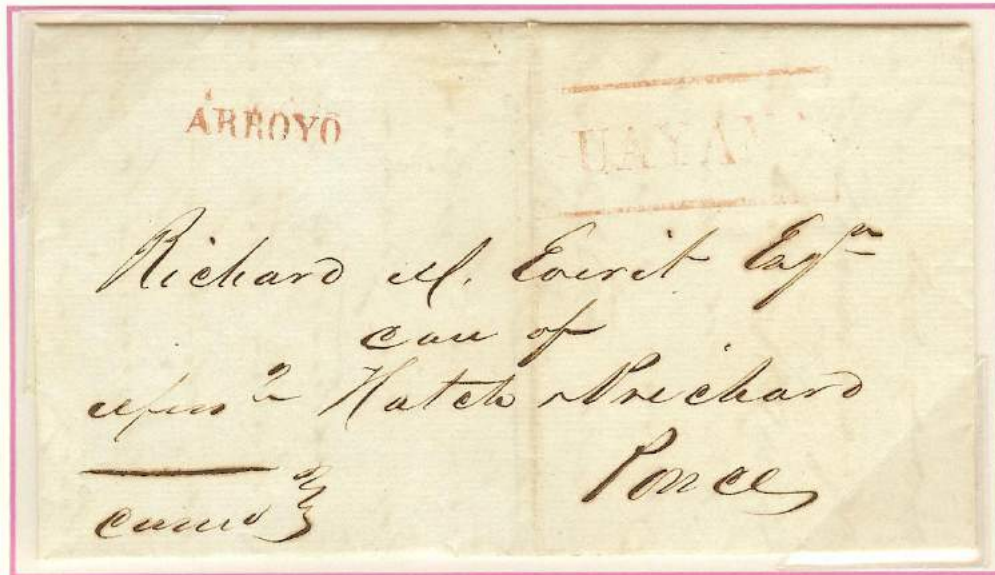 ARROYO
UAYA
Richard M. Everit Esqr
care of
Hatch Prichard
Ponce